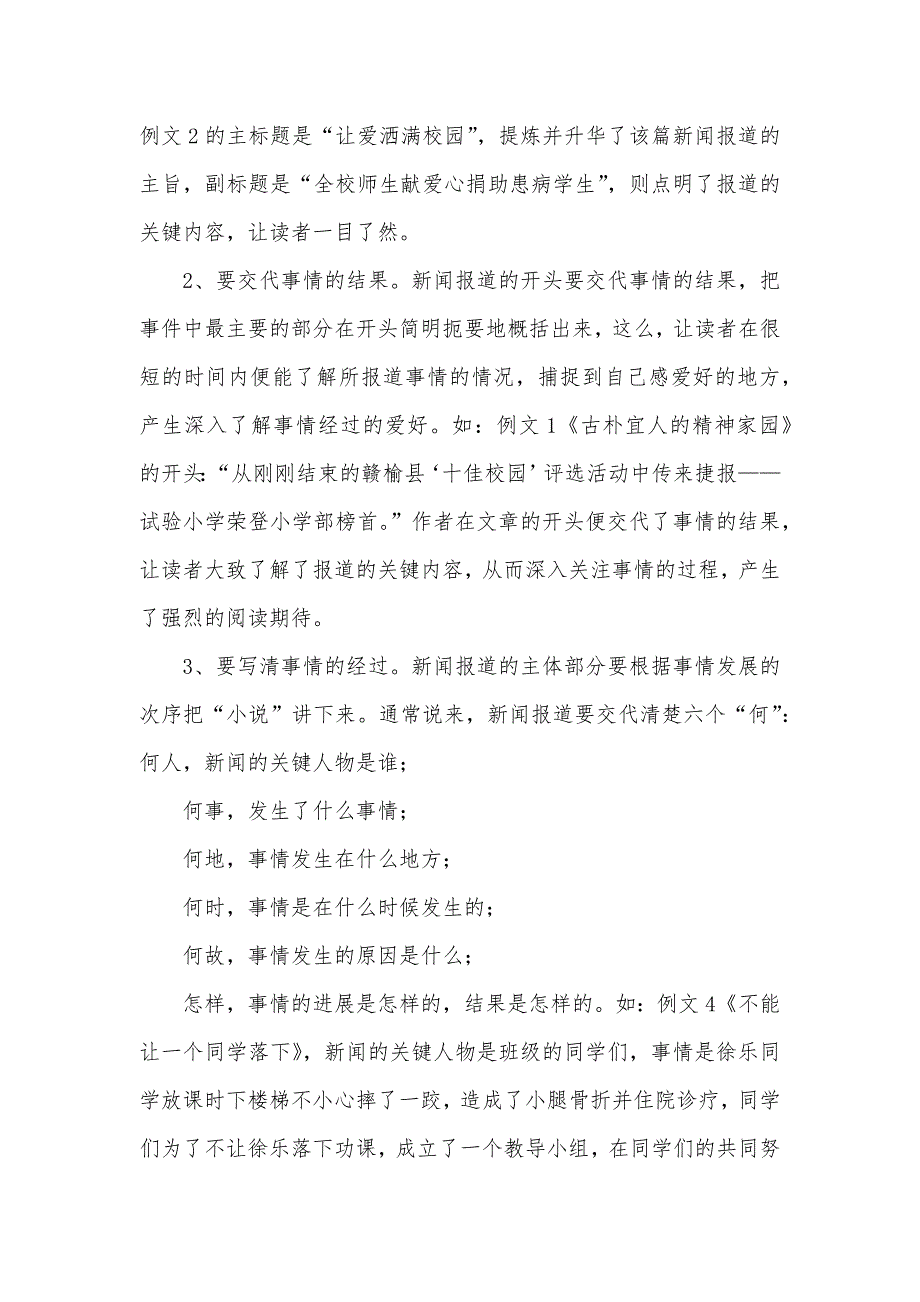 例文2的主标题是“让爱洒满校园”，提炼并升华了该篇新闻报道的
主旨，副标题是“全校师生献爱心捐助患病学生”，则点明了报道的
关键内容，让读者一目了然。
2、要交代事情的结果。新闻报道的开头要交代事情的结果，把
事件中最主要的部分在开头简明扼要地概括出来，这么，让读者在很
短的时间内便能了解所报道事情的情况，捕捉到自己感爱好的地方，
产生深入了解事情经过的爱好。如：例文1《古朴宜人的精神家园》
的开头：“从刚刚结束的赣榆县‘十佳校园’评选活动中传来捷报——
试验小学荣登小学部榜首。”作者在文章的开头便交代了事情的结果，
让读者大致了解了报道的关键内容，从而深入关注事情的过程，产生
了强烈的阅读期待。
3、要写清事情的经过。新闻报道的主体部分要根据事情发展的
次序把“小说”讲下来。通常说来，新闻报道要交代清楚六个“何”：
何人，新闻的关键人物是谁；
何事，发生了什么事情；
何地，事情发生在什么地方；
何时，事情是在什么时候发生的；
何故，事情发生的原因是什么；
怎样，事情的进展是怎样的，结果是怎样的。如：例文4《不能
让一个同学落下》，新闻的关键人物是班级的同学们，事情是徐乐同
学放课时下楼梯不小心摔了一跤，造成了小腿骨折并住院诊疗，同学
们为了不让徐乐落下功课，成立了一个教导小组，在同学们的共同努